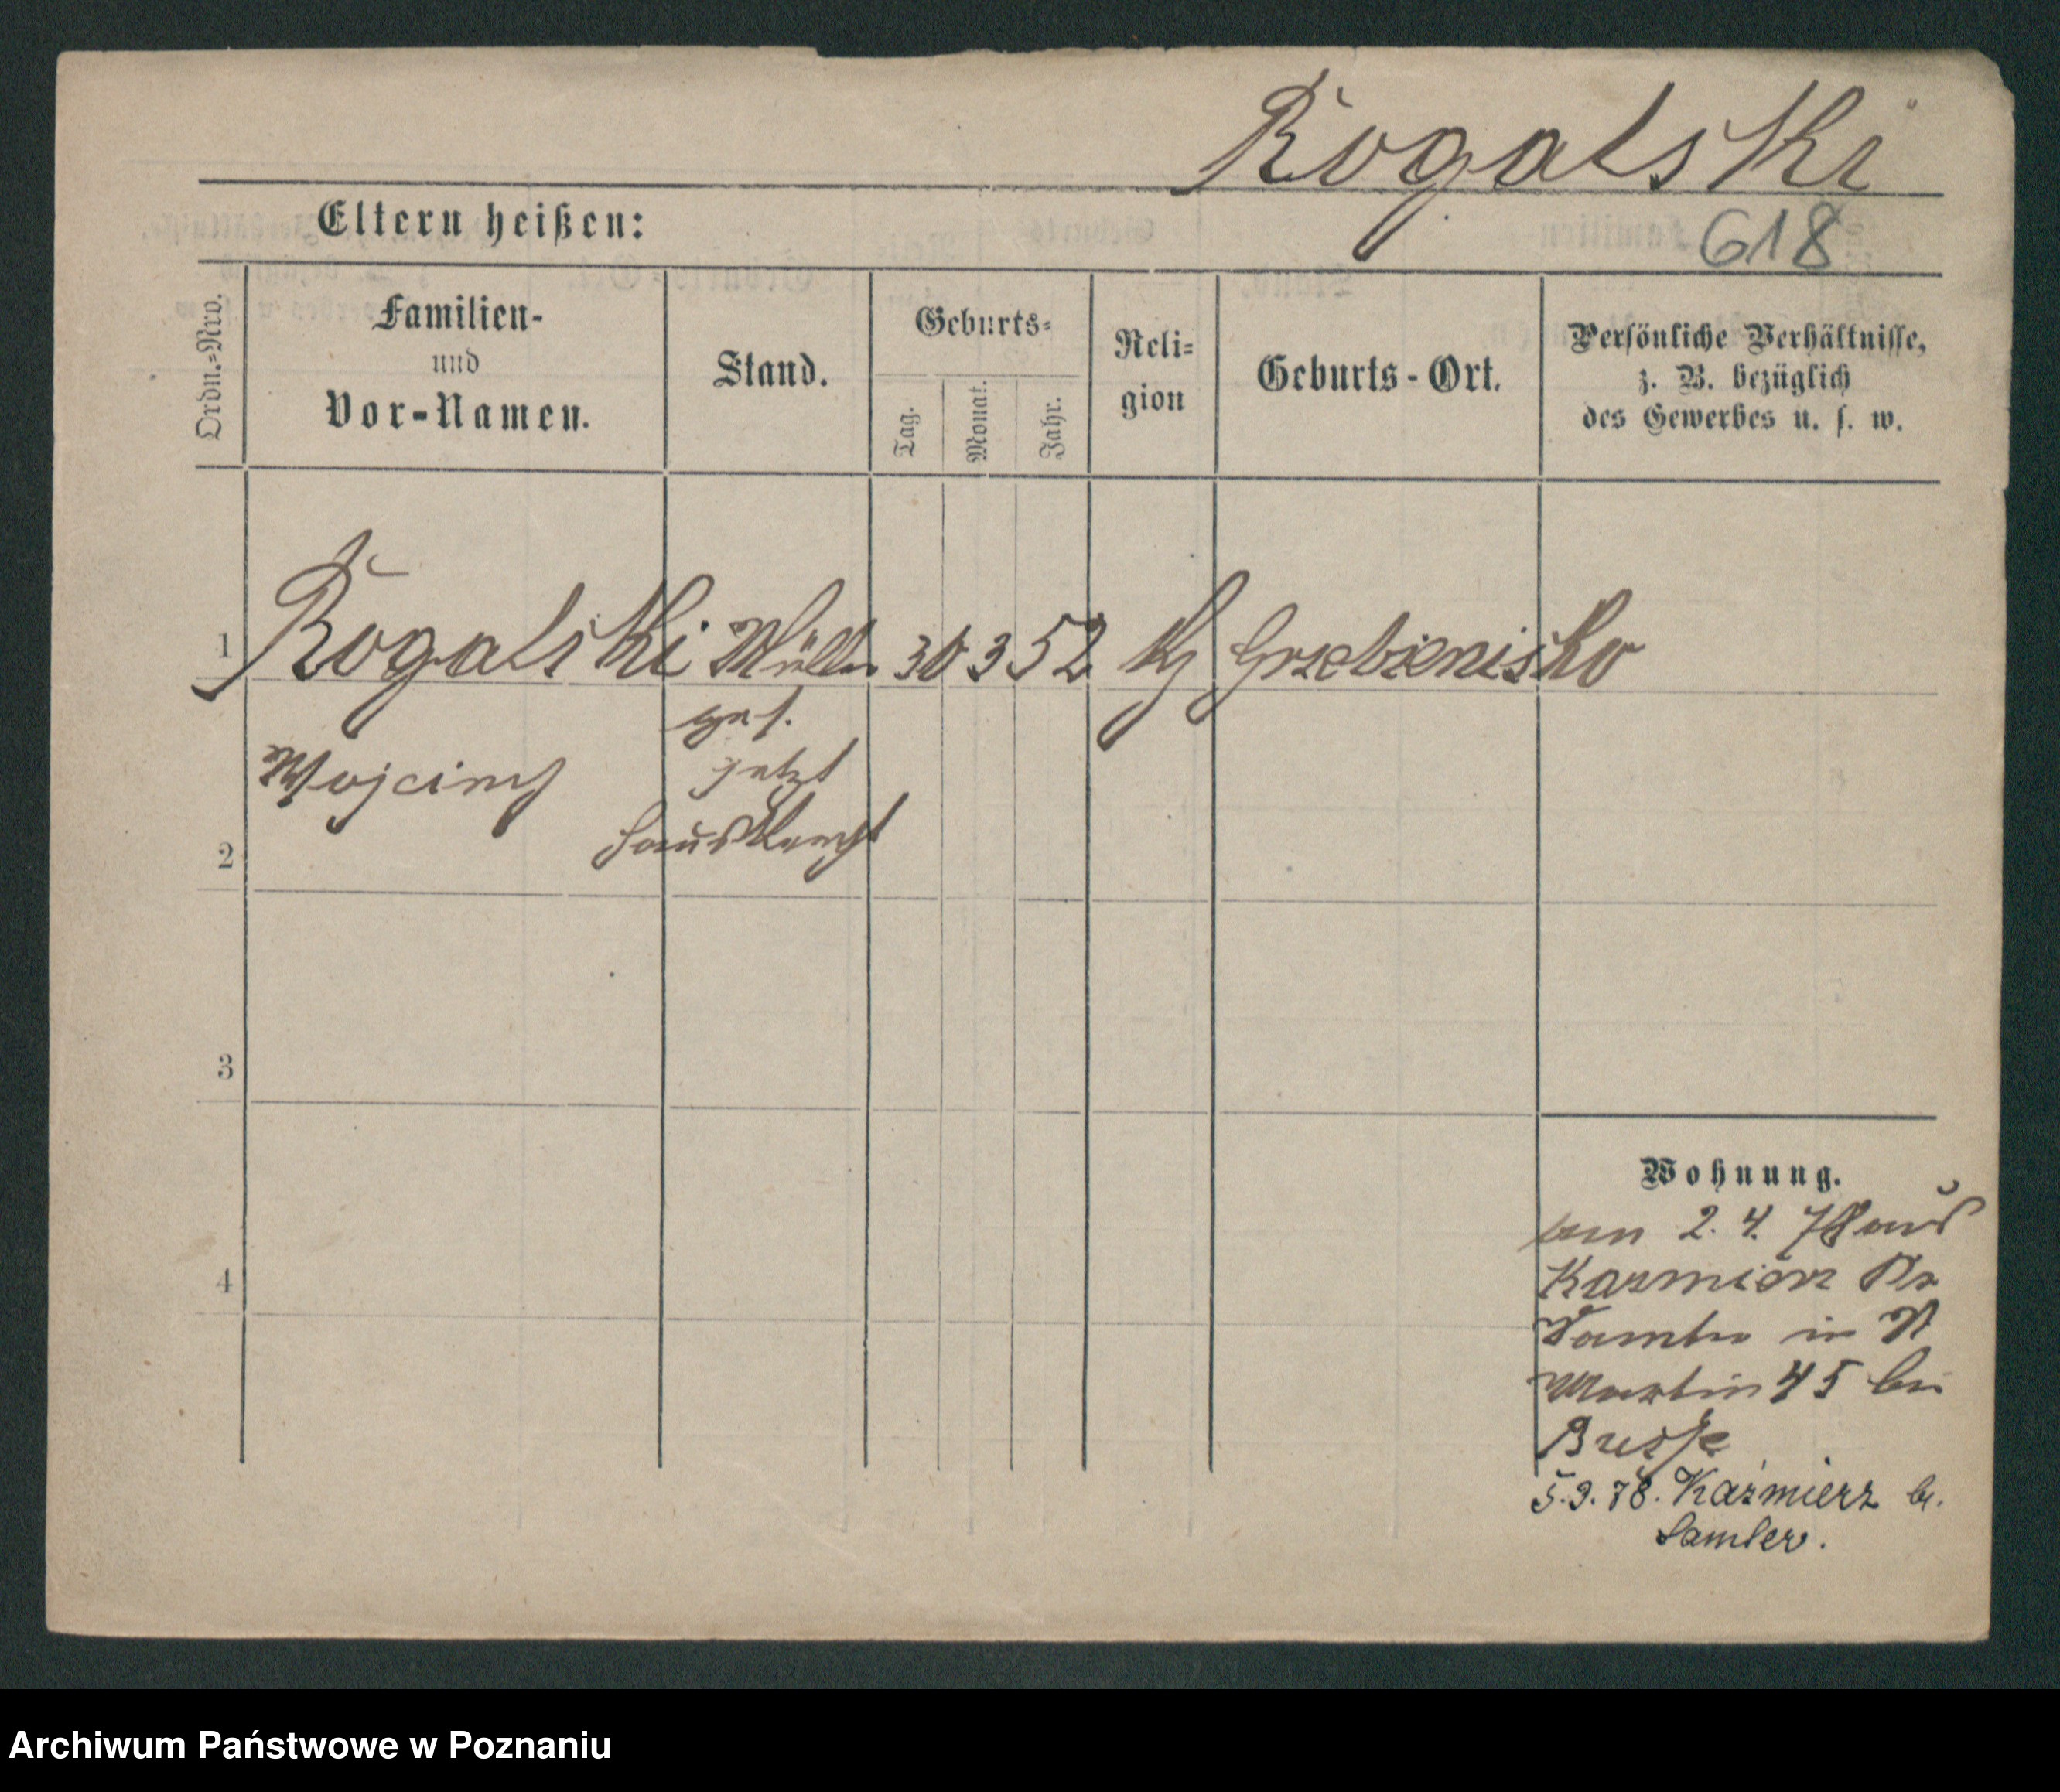 Rogalski
618
Eltern heißen:
Ordn.=Nro.
Familien-
und
Vor-Namen.
Stand.
Geburts=
Tag.
Monat.
Jahr.
Reli=
gion
Geburts-Ort.
Persönliche Verhältnisse,
z. B. bezüglich
des Gewerbes u. s. w.
1 Rogalski Müller 30 3 52 Grzebienisko
ges.
Wojciech jetzt
Hausknecht
2
3
4
Wohnung.
am 2. 4. 78 aus
Kazmierz Kr
Samter in St
Martin 45 bei
Busse
5.9.78. Kaźmierz b.
Samter.
Archiwum Państwowe w Poznaniu